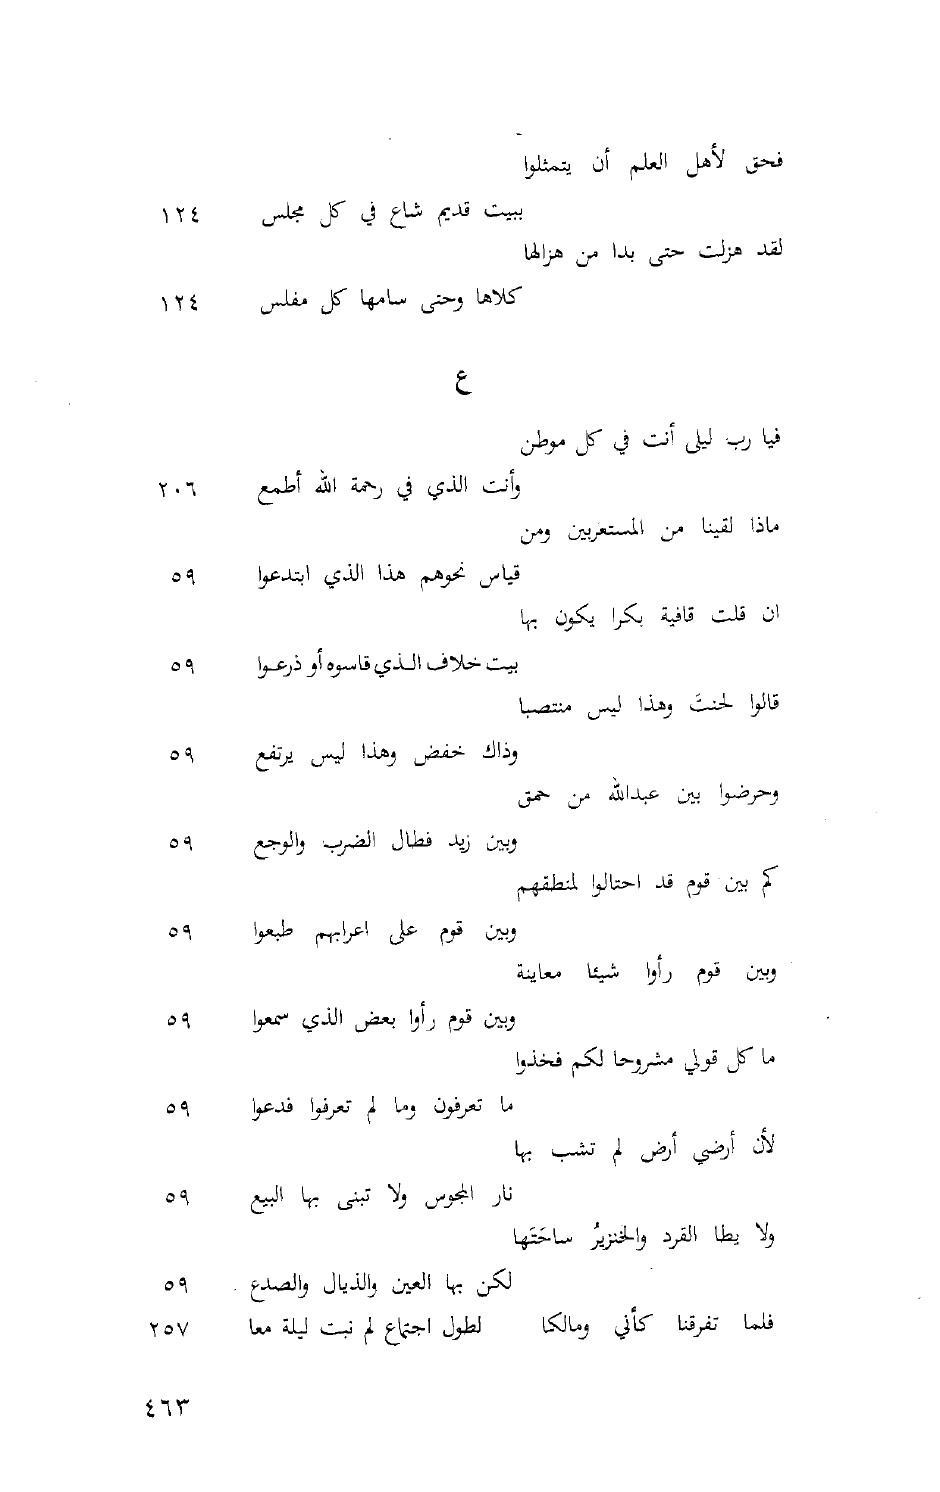 فحق لأهل العلم أن يتمثلوا
ببيت قديم شاع في كل مجلس ١٢٤
لقد هزلت حتى بدا من هزالها
كلاها وحتى سامها كل مفلس ١٢٤
ع
فيا رب ليلى أنت في كل موطن
وأنت الذي في رحمة الله أطمع ٢٠٦
ماذا لقينا من المستعربين ومن
قياس نحوهم هذا الذي ابتدعوا ٥٩
ان قلت قافية بكرا يكون بها
بيت خلاف الذي قاسوه أو ذرعوا ٥٩
قالوا لحنتَ وهذا ليس منتصبا
وذاك خفض وهذا ليس يرتفع ٥٩
وحرضوا بين عبدالله من حمق
وبين زيد فطال الضرب والوجع ٥٩
كم بين قوم قد احتالوا لمنطقهم
وبين قوم على اعرابهم طبعوا ٥٩
وبين قوم رأوا شيئا معاينة
وبين قوم رأوا بعض الذي سمعوا ٥٩
ما كل قولي مشروحا لكم فخذوا
ما تعرفون وما لم تعرفوا فدعوا ٥٩
لأن أرضي أرض لم تشب بها
نار المجوس ولا تبنى بها البيع ٥٩
ولا يطا القرد والخنزيرُ ساحَتَها
لكن بها العين والذيال والصدع ٥٩
فلما تفرقنا كأني ومالكا لطول اجتماع لم نبت ليلة معا ٢٥٧
٤٦٣